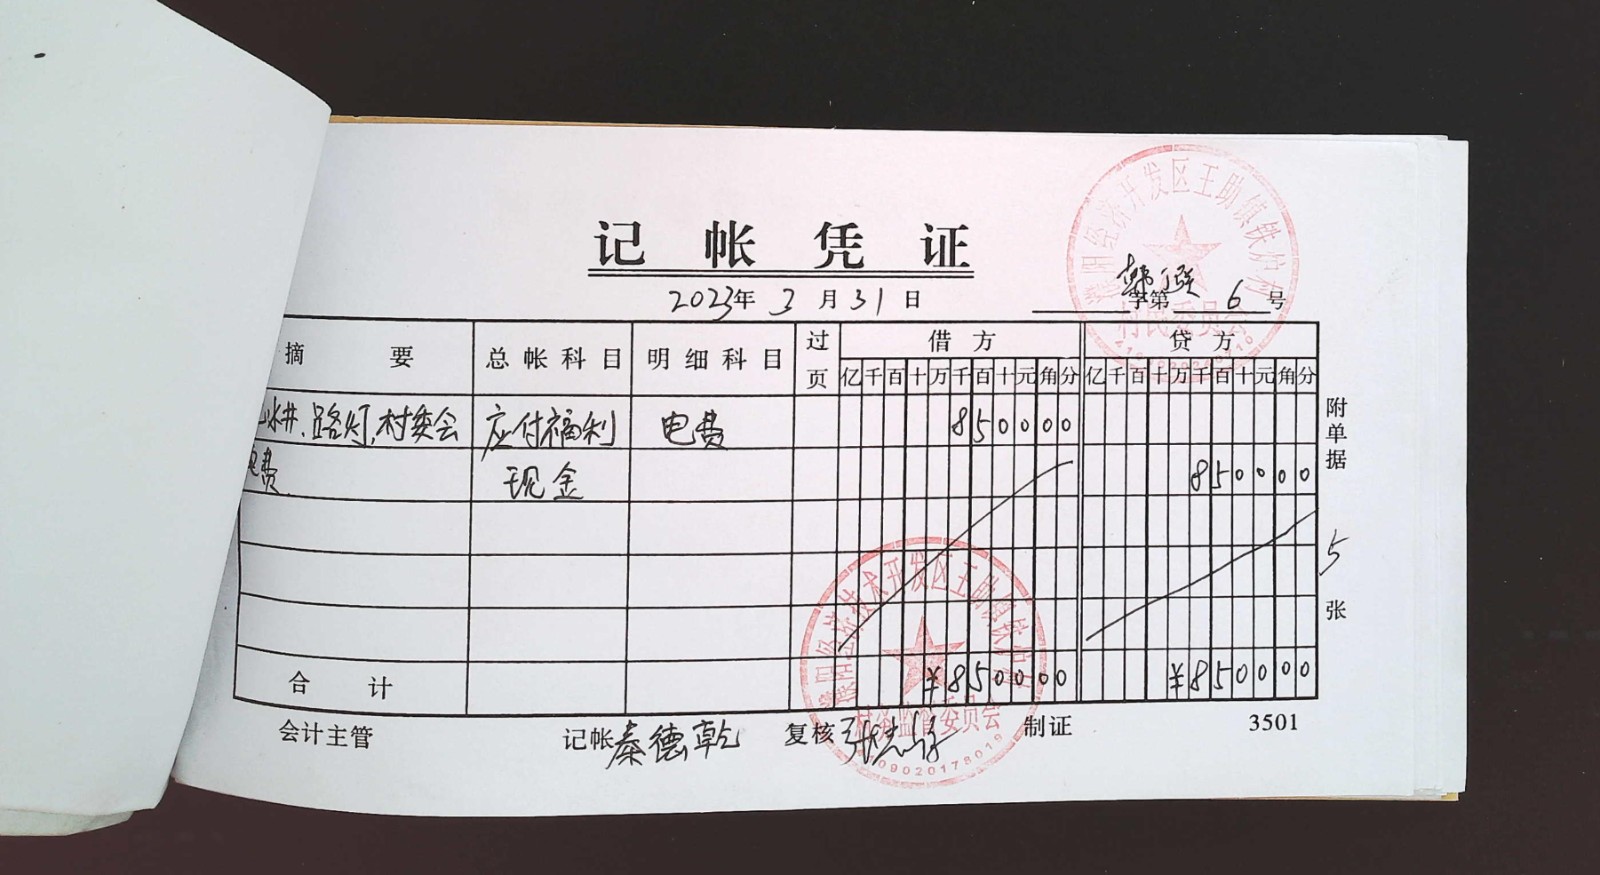 濮阳经济开发区王助镇铁炉村
村民委员会
记帐凭证
2023年 3 月 31 日
字第 6 号
摘 要 总帐科目 明细科目 过页 借方 贷方
亿千百十万千百十元角分 亿千百十万千百十元角分
水井、路灯,村委会 应付福利 电费 850000
电费 现金 850000
附单据 5 张
合 计 ¥850000 ¥850000
濮阳经济技术开发区王助镇铁炉村
村务监督委员会
会计主管 记帐 秦德乾 复核 制证 3501